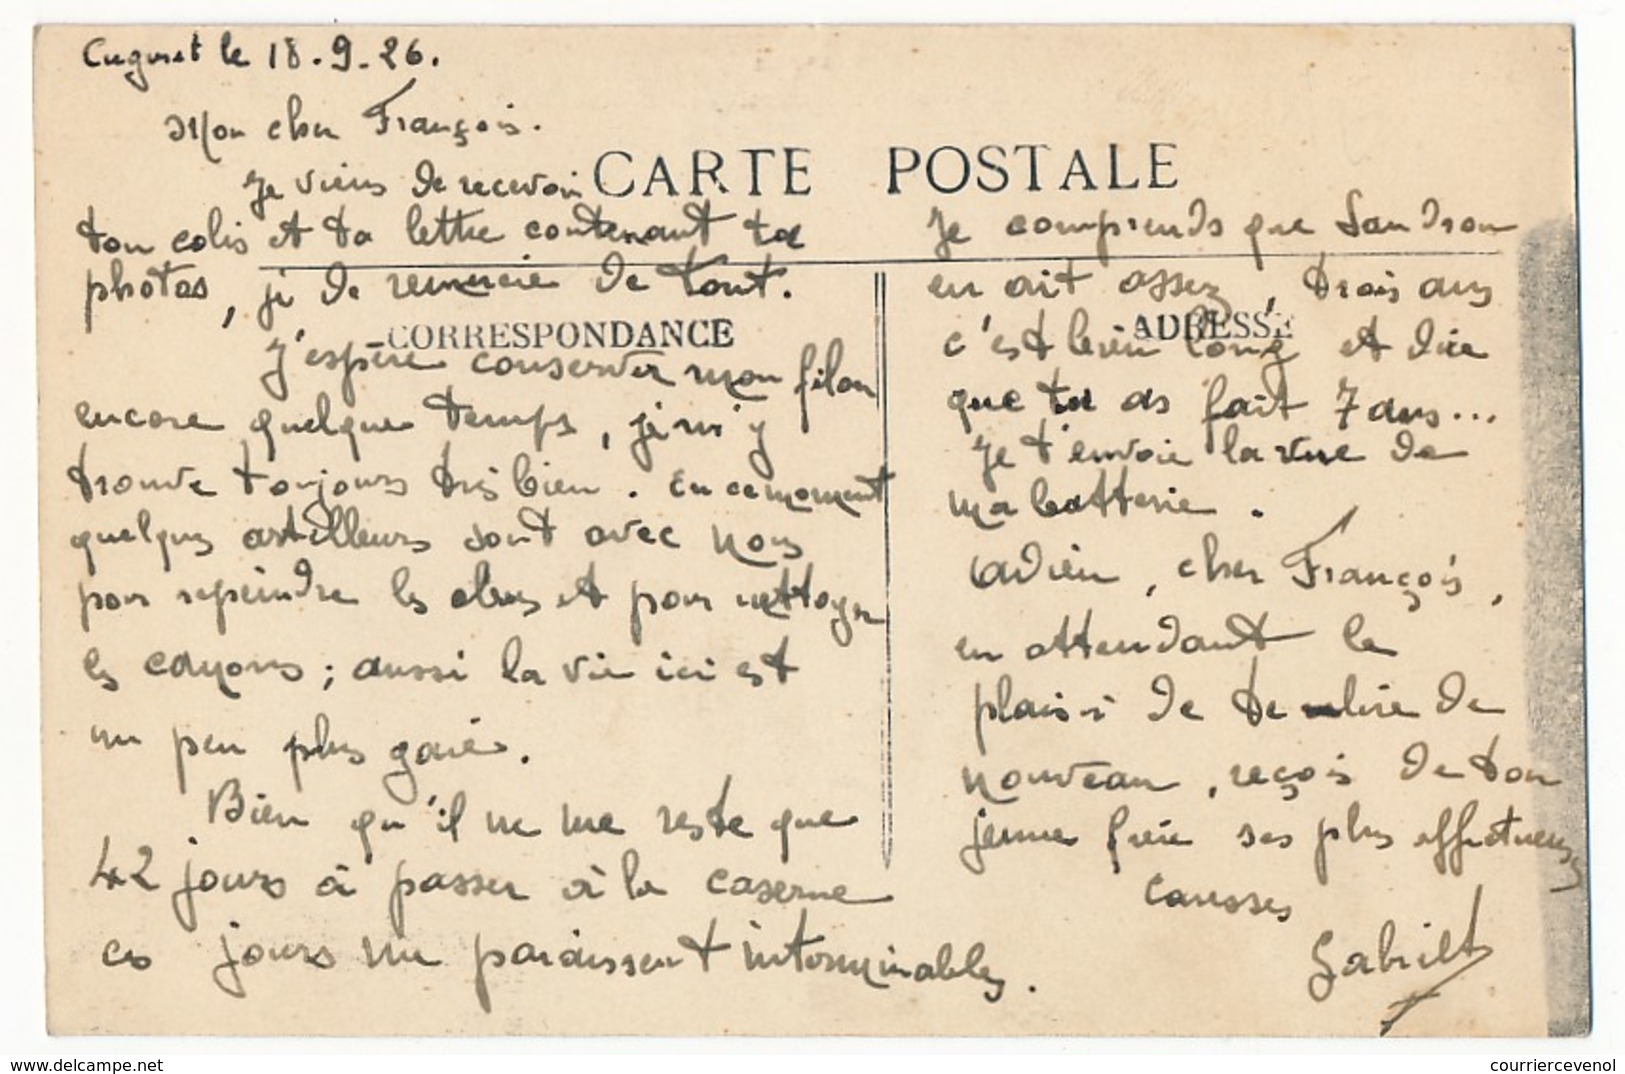 le 18.9.26.
Mon cher François.
CARTE POSTALE
Je viens de recevoir
ton colis et ta lettre contenant ta
photos, je te remercie de tout.
CORRESPONDANCE
J'espère conserver mon filon
encore quelque temps, je m'y
trouve toujours très bien. En ce moment
quelques artilleurs sont avec nous
pour repeindre les obus et pour nettoyer
les canons ; aussi la vie ici est
un peu plus gaie.
Bien qu'il ne me reste que
42 jours à passer à la caserne
ces jours me paraissent interminables.
Je comprends que Landron
en ait assez, trois ans
ADRESSE
c'est bien long et dire
que tu as fait 7 ans...
Je t'envoie la vue de
ma batterie.
Adieu, cher François,
en attendant le
plaisir de te lire de
nouveau, reçois de ton
jeune frère ses plus affectueuses
caresses
Gabriel
courriercevenol